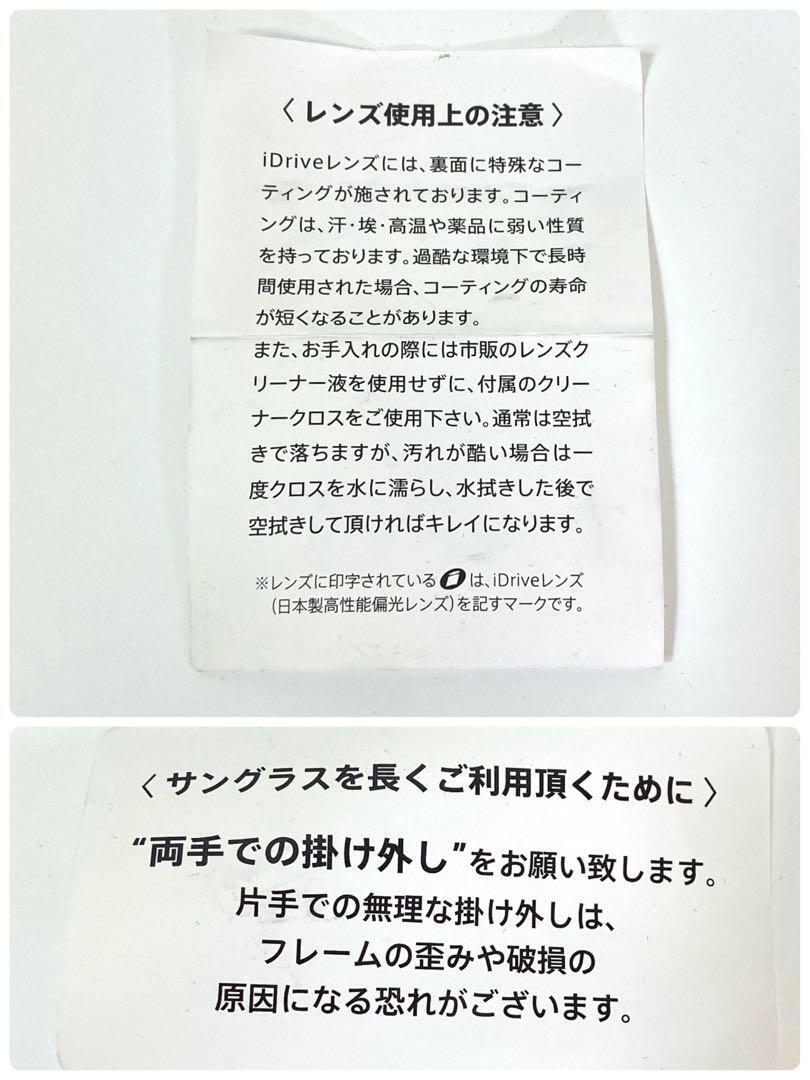 〈レンズ使用上の注意〉
iDriveレンズには、裏面に特殊なコー
ティングが施されております。コーティ
ングは、汗・埃・高温や薬品に弱い性質
を持っております。過酷な環境下で長時
間使用された場合、コーティングの寿命
が短くなることがあります。
また、お手入れの際には市販のレンズク
リーナー液を使用せずに、付属のクリー
ナークロスをご使用下さい。通常は空拭
きで落ちますが、汚れが酷い場合は一
度クロスを水に濡らし、水拭きした後で
空拭きして頂ければキレイになります。
※レンズに印字されている は、iDriveレンズ
(日本製高性能偏光レンズ)を記すマークです。
〈サングラスを長くご利用頂くために〉
“両手での掛け外し”をお願い致します。
片手での無理な掛け外しは、
フレームの歪みや破損の
原因になる恐れがございます。